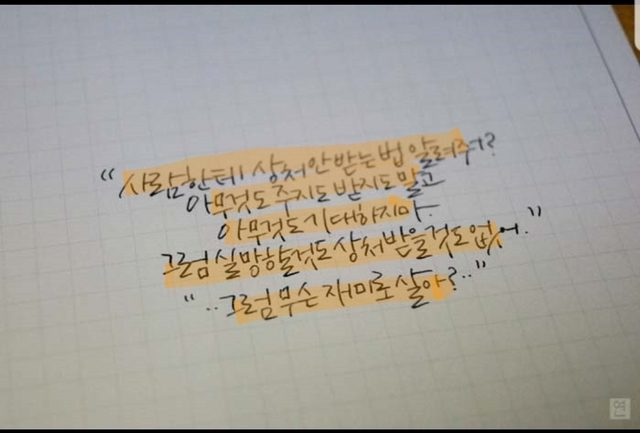 “사람한테 상처 안 받는 법 알려줘?
아무것도 주지도 받지도 말고
아무것도 기대하지마.
그럼 실망할것도 상처 받을것도 없어.”
“..그럼 무슨 재미로 살아?..”
연